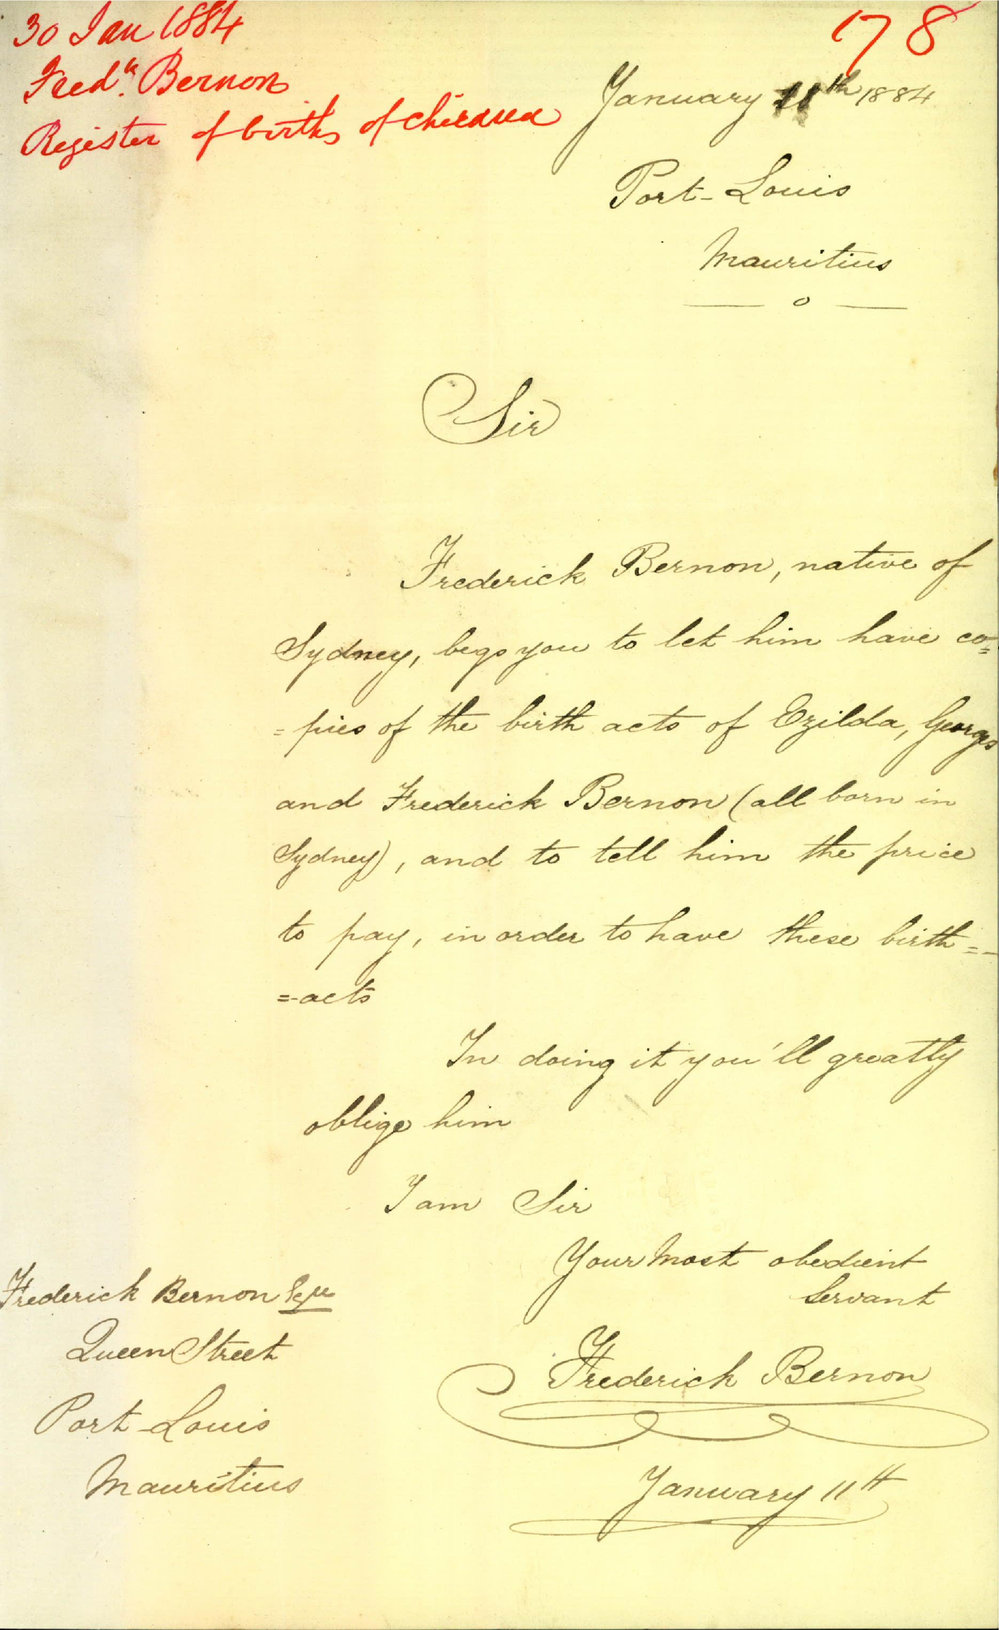 30 Jan 1884
Fredk. Bernon
Register of births of children
178
January 11th 1884
Port-Louis
Mauritius
Sir
Frederick Bernon, native of
Sydney, begs you to let him have co=
=pies of the birth acts of Ezilda, Georges
and Frederick Bernon (all born in
Sydney), and to tell him the price
to pay, in order to have these birth=
=acts
In doing it you'll greatly
oblige him
I am Sir
Your most obedient
Servant
Frederick Bernon
January 11th
Frederick Bernon Eqre
Queen Street
Port-Louis
Mauritius